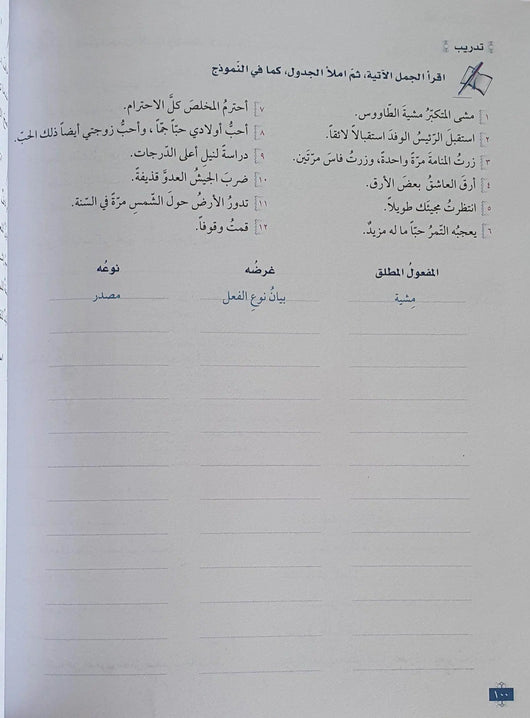 تدريب
اقرأ الجمل الآتية، ثمّ املأ الجدول، كما في النّموذج
١ مشى المتكبّرُ مشيةَ الطّاووس.
٢ استقبلَ الرّئيسُ الوفدَ استقبالاً لائقاً.
٣ زرتُ المنامةَ مرّةً واحدةً، وزرتُ فاسَ مرّتَين.
٤ أرقَ العاشقُ بعضَ الأرق.
٥ انتظرتُ مجيئَك طويلاً.
٦ يعجبُه التّمرُ حبّاً ما له مزيدٌ.
٧ أحترمُ المخلصَ كلَّ الاحترام.
٨ أحبُّ أولادي حبّاً جمّاً، وأحبُّ زوجتي أيضاً ذلك الحبّ.
٩ دراسةً لنيل أعلى الدّرجات.
١٠ ضربَ الجيشُ العدوَّ قذيفةً.
١١ تدورُ الأرضُ حولَ الشّمسِ مرّةً في السّنة.
١٢ قمتُ وقوفاً.
المفعولُ المطلق غرضُه نوعُه
مِشية بيانُ نوعِ الفعل مصدر
١٠٠